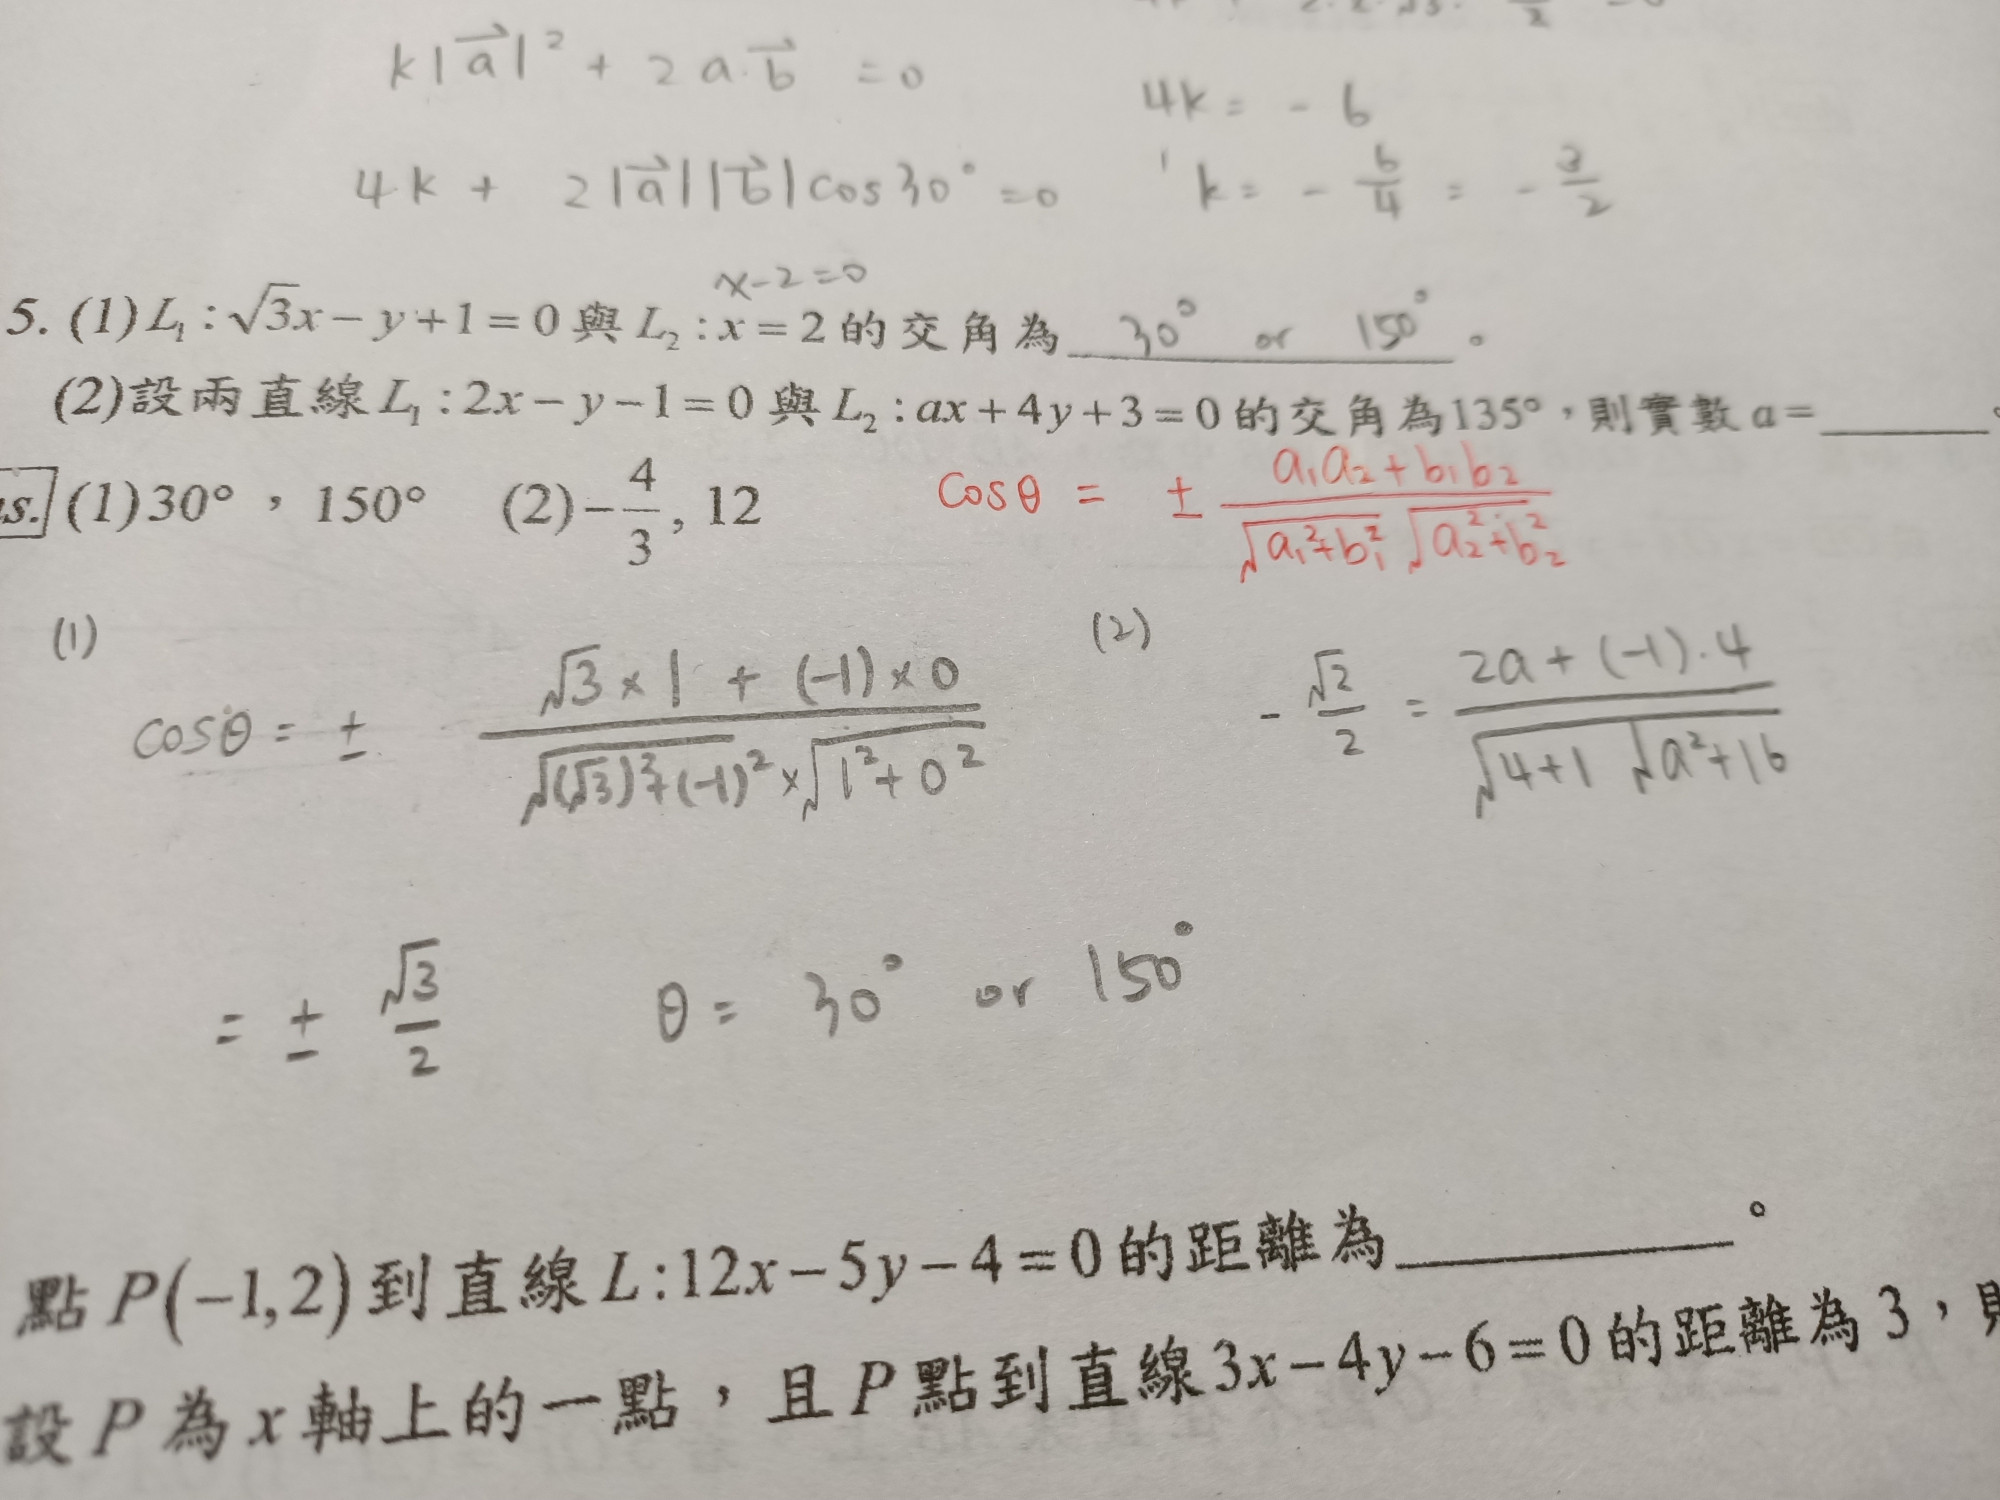 k|a⃗|² + 2a·b⃗ = 0
4k = -6
4k + 2|a⃗||b⃗|cos30° = 0
k = -6/4 = -3/2
x-2=0
5. (1) L₁ : √3x − y + 1 = 0 與 L₂ : x = 2 的交角為 30° or 150° 。
(2)設兩直線 L₁ : 2x − y − 1 = 0 與 L₂ : ax + 4y + 3 = 0 的交角為135°，則實數 a = ______。
s. (1)30°，150° (2)−4/3, 12
cosθ = ± (a₁a₂+b₁b₂)/(√(a₁²+b₁²) √(a₂²+b₂²))
(1)
cosθ = ± (√3×1 + (-1)×0)/(√((√3)²+(-1)²) × √(1²+0²))
(2)
-√2/2 = (2a+(-1)·4)/(√(4+1) √(a²+16))
= ± √3/2 θ = 30° or 150°
點 P(−1,2) 到直線 L:12x−5y−4=0 的距離為______。
設 P 為 x 軸上的一點，且 P 點到直線 3x−4y−6=0 的距離為 3，